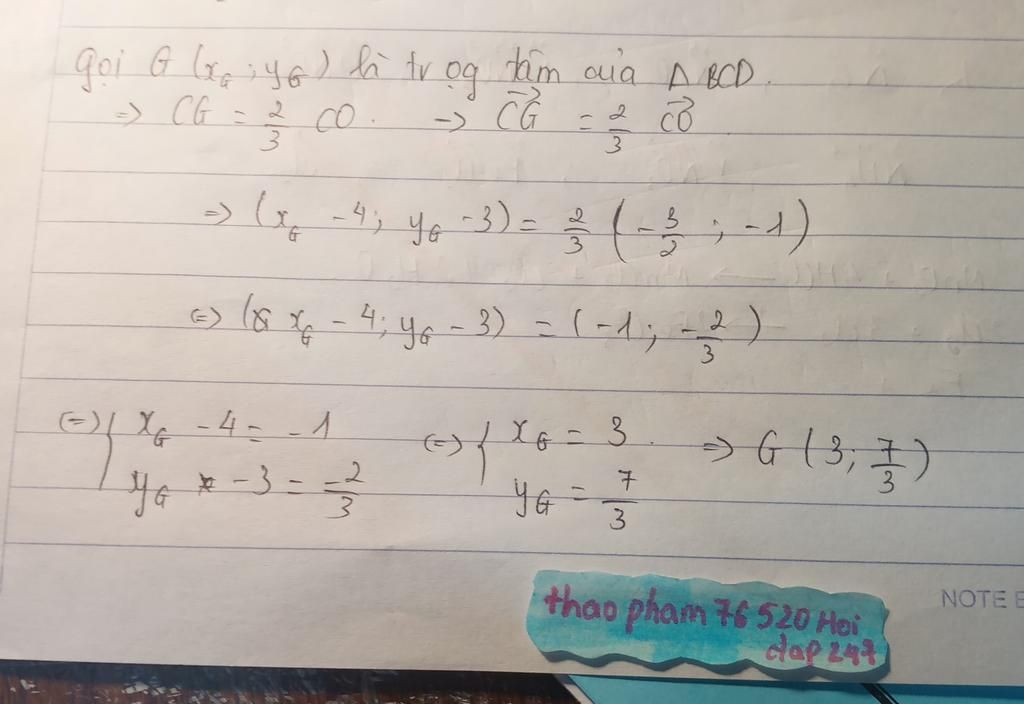 gọi G (x_G ; y_G) là trọg tâm của Δ BCD.
=> CG = 2/3 CO. -> \vec{CG} = 2/3 \vec{CO}
=> (x_G - 4; y_G - 3) = 2/3 (-3/2 ; -1)
(=) (x_G - 4; y_G - 3) = (-1; -2/3)
(=) { x_G - 4 = -1 (=) { x_G = 3. => G (3; 7/3)
y_G - 3 = -2/3 y_G = 7/3
NOTE
thao pham 76 520 Hoi
dap 247